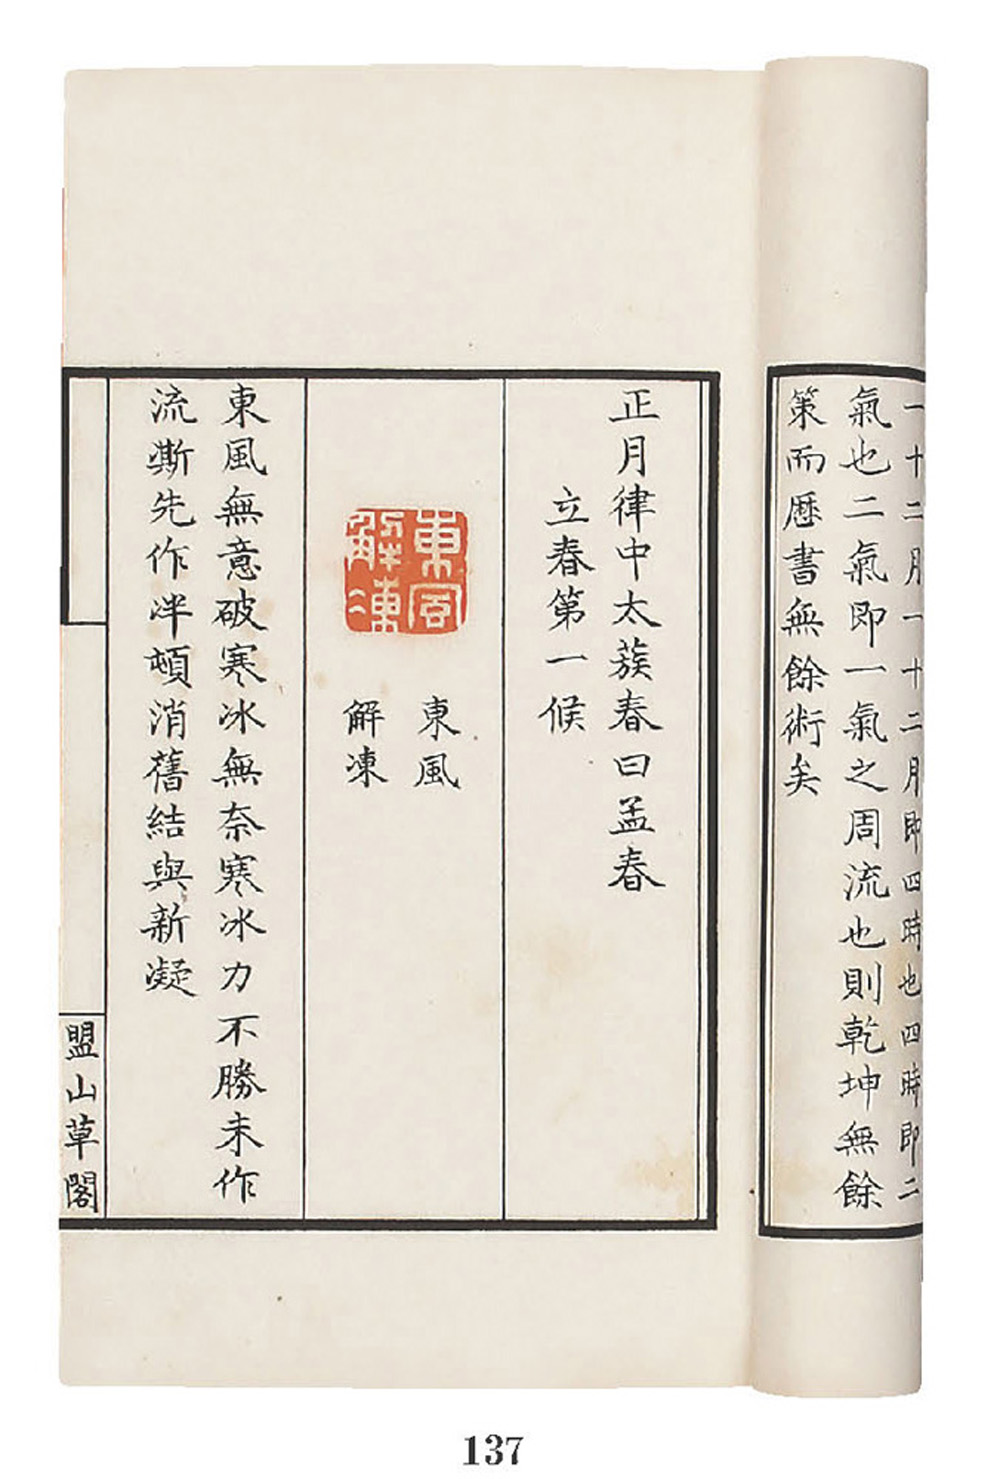 一十二月一十二月即四時也四時即二
氣也二氣即一氣之周流也則乾坤無餘
策而歷書無餘術矣
正月律中太蔟春曰孟春
立春第一候
東風
解凍
東風
解凍
東風無意破寒冰無奈寒冰力不勝未作
流澌先作泮頓消舊結與新凝
盟山草閣
137